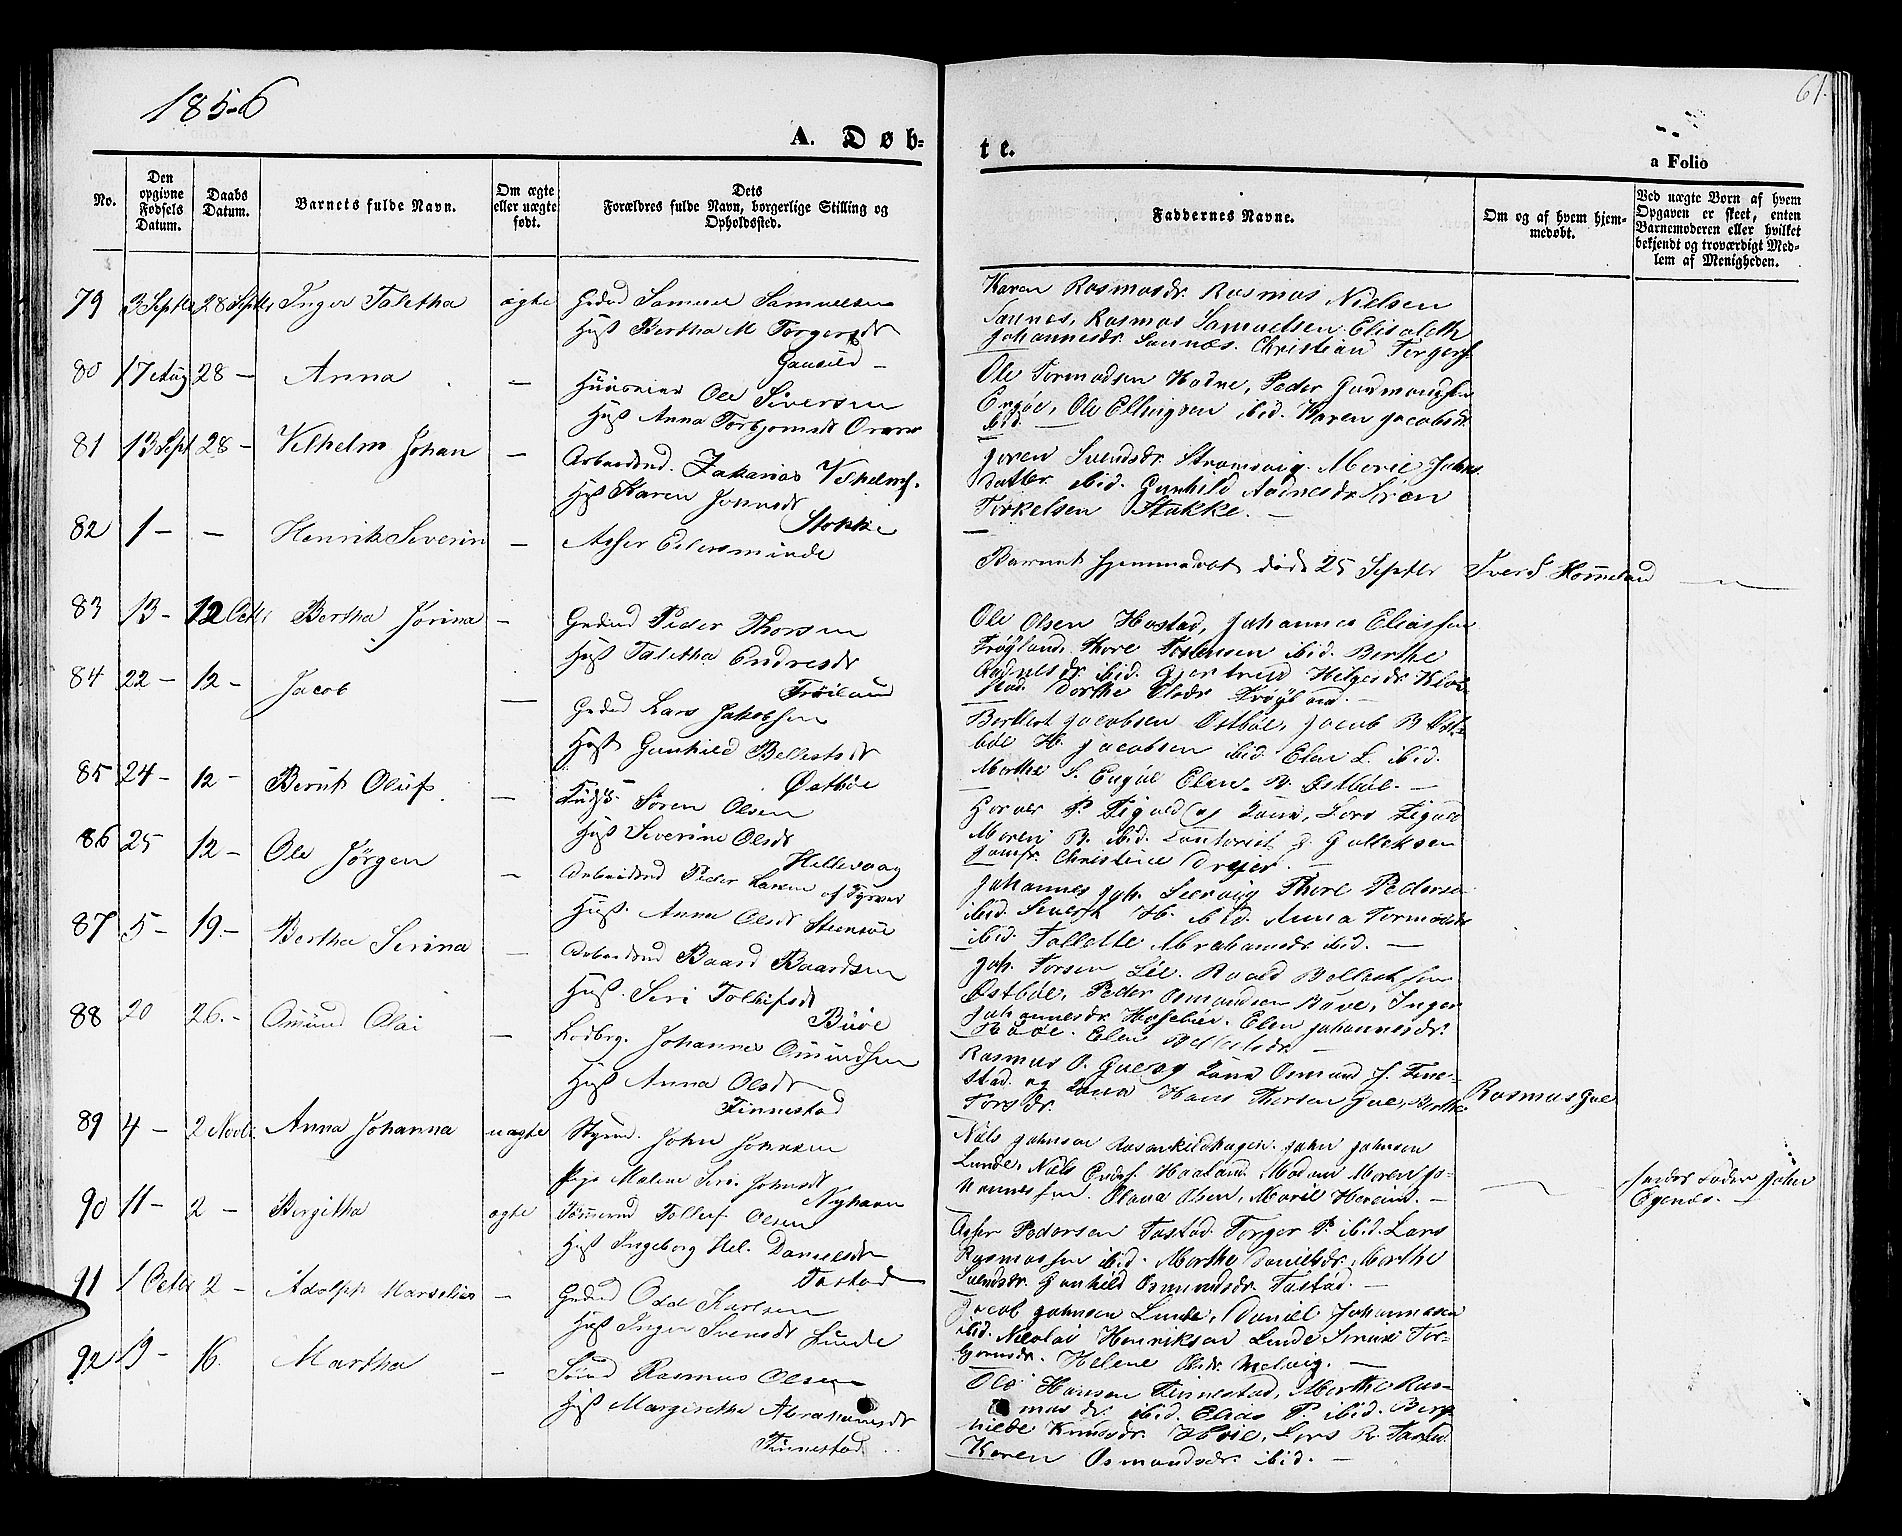 1856
61.
A. Døb-
te.
a Folio
No.
Den opgivne Fødsels Datum.
Daabs Datum.
Barnets fulde Navn.
Om ægte eller uægte født.
Dets Forældres fulde Navn, borgerlige Stilling og Opholdssted.
Faddernes Navne.
Om og af hvem hjemmedøbt.
Ved uægte Børn af hvem Opgaven er skeet, enten Barnemoderen eller hvilket bekjendt og troværdigt Medlem af Menigheden.
79 3 Septbr 28 Septbr Inger Taletha ægte Grdmd Samuel Samuelsen
Hust Bertha M Torgersdr
Gausild
Karen Rasmusdr. Rasmus Nielsen
Saunes, Rasmus Samuelsen Elisabeth
Johannesdr. Saunes. Christian Torgers
80 17 Aug 28 - Anna - Ole Siversen
Hust Anna Torbjornsdr
Ole Tormodsen Hodne, Peder Gudmundsen
Engøe, Ole Ellingsen ibid. Karen Jacobsdr
ibid.
81 13 Sept 28 - Vilhelm Johan - Arbeidsmd. Zakarias Vilhelms.
Hust Karen Jonasdr
Stokke
Joren Svendsdr. Strømsvig. Marie Johns
datter ibid. Gunhild Aadnesdr Sren
Torkelsen Stakke. -
82 1 - - Henrik Severin - Asser Eilersminde
Barnet hjemmedøbt døde 25 Septbr
Iver S Hommeland
83 13 - 12 Octbr Bertha Jorina - Grdmd Peder Thorsen
Hust Taletha Endresdr
Trøiland
Ole Olsen Hastad, Johannes Eliassen
Trøyland, Thore Tostensen ibid. Berthe
Aadnesdr ibid. Gjertrud Helgesdr Klov
stad. Dorthe Olsdr Trøyland. -
84 22 - 12 - Jacob - Grdmd Lars Jakobsen
Hust Gunhild Bellestsdr
Østbøe
Berthel Jacobsen Ostbøe, Jacob B Øst-
bøe H. Jacobsen ibid. Elen L. ibid.
Marthe S. Engøe Elen B. Østbøe. -
85 24 - 12 - Berut Oluf - Søren Olsen
Hust Severine Olsdr
Hellevaag
P. Tigvald og Kone, Lars Tigvald
Maren B. ibid. J. Gulleksen
Jomfr. Christine Drejer. -
86 25 12 - Ole Jörgen - Arbeidsmd Peder Larsen af Tysvær
Hust. Anna Olsdr Steensøe
Johannes Joh. Leervig Thore Pedersen
ibid. Sivert H. ibid. Anna Tormodsdr
ibid. Tallette Abrahamsdr ibid. -
87 5 - 19. - Bertha Serina - Arbeidsmd Baard Baardsen
Hust. Seri Tollefsdr
Büøe
Joh. Torsen Lie. Roald Bellestsen
Østbøe, Peder Osmundsen Bøve, Inger
Johannesdr. Elen Johannesdr.
Elen Bellestsdr. -
88 20 26. - Omund Olai - Lodbrg. Johannes Omundsen
Hust Anna Olsdr
Finnestad
Rasmus O. Gue og Kone Osmund J. Finne-
stad. og Kone Hans Thorsen Gue, Berthe
Torsdr.
Rasmus Gue
89 4 - 2 Novbr Anna Johanna uægte Styrmd. John Johnsen
Pige Malene Seri. Johnsdr
Nyhavn
Nils Johnsen Rosenkildhagen. John Johnsen
Lunde, Nils Enders. Haaland. Madam Maren Jo-
hannessen. Olava Olsen, Marie Hereid. -
John
Egenæs. -
90 11 - 2 - Bergitha ægte Tømmermd Tollef Olsen
Hust Ingeborg Hel. Danielsdr
Tastad
Asser Pedersen Tastad. Torger P. ibid. Lars
Rasmussen ibid. Marthe Danielsdr. Marthe
Svendsdr. Gunhild Osmundsdr. Tastad. -
91 1 Octbr 2 - Adolph Marselius - Grdmd Odd Karlsen
Hust Inger Svensdr Lunde
Jacob Johnsen Lunde, Daniel Johannesen
ibid. Nicolai Henriksen Lunde Simune Tor-
bjornsdr. Helene Olsdr Melvig. -
92 19 - 16. Martha - Rasmus Olsen
Hust Margrethe Abrahamsdr
Finnestad
Ole Hansen Finnestad, Marthe Ras-
musdr. ibid. Elias P. ibid. Berg-
hilde Knudsdr. Lars R. Tastad.
Karen Osmundsdr. ibid. -